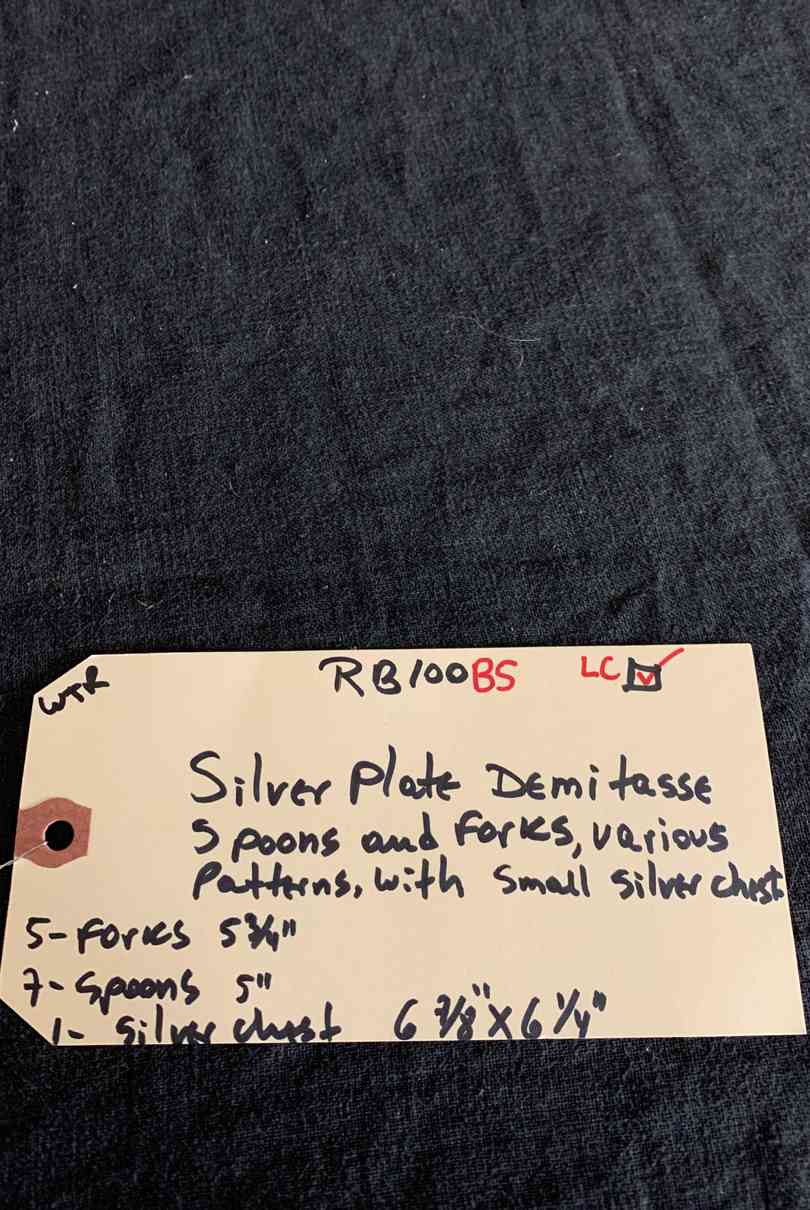 WTR
RB100BS LC
Silver Plate Demitasse
Spoons and Forks, various
Patterns, with Small Silver chest
5- Forks 5 3/4"
7- Spoons 5"
1- Silver chest 6 7/8" X 6 1/4"